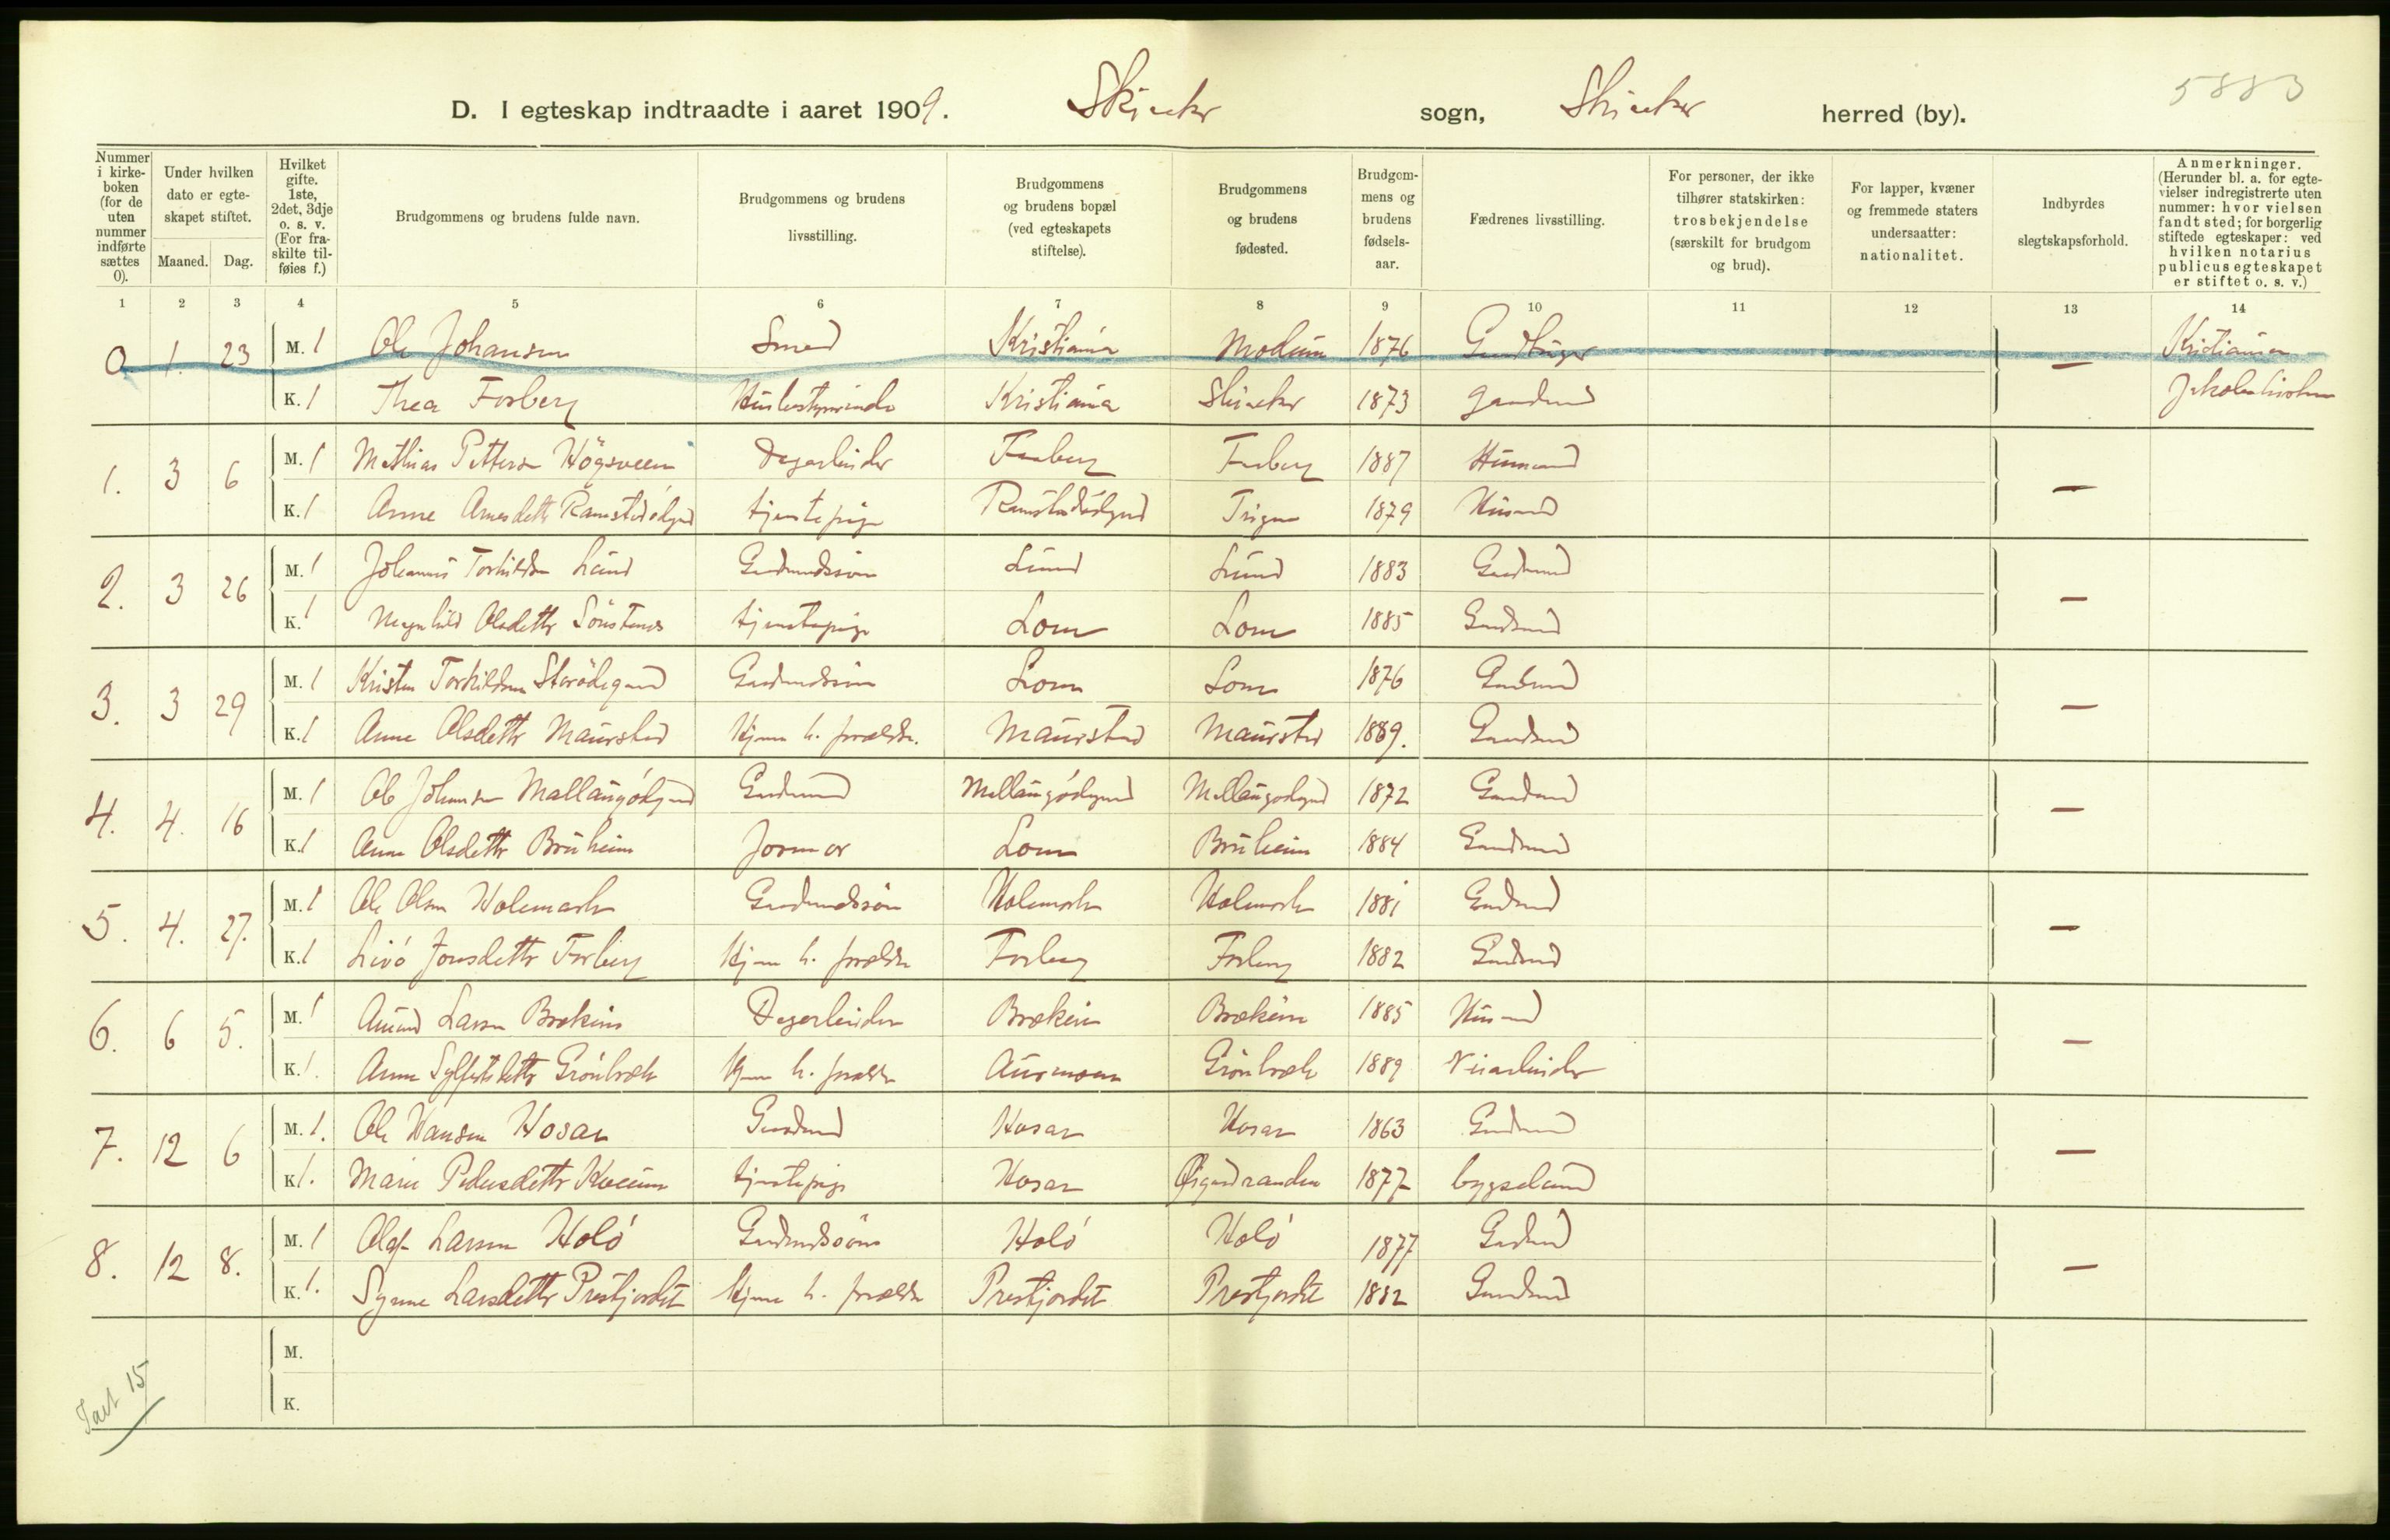 5883
D. I egteskap indtraadte i aaret 1909. Skiaker sogn, Skiaker herred (by).
Nummer i kirkeboken (for de uten nummer indførte sættes 0).
Under hvilken dato er egteskapet stiftet.
Maaned. Dag.
Hvilket gifte. 1ste, 2det, 3dje o. s. v. (For fraskilte tilføies f.)
Brudgommens og brudens fulde navn.
Brudgommens og brudens livsstilling.
Brudgommens og brudens bopæl (ved egteskapets stiftelse).
Brudgommens og brudens fødested.
Brudgommens og brudens fødselsaar.
Fædrenes livsstilling.
For personer, der ikke tilhører statskirken: trosbekjendelse (særskilt for brudgom og brud).
For lapper, kvæner og fremmede staters undersaatter: nationalitet.
Indbyrdes slegtskapsforhold.
Anmerkninger. (Herunder bl. a. for egtevielser indregistrerte uten nummer: hvor vielsen fandt sted; for borgerlig stiftede egteskaper: ved hvilken notarius publicus egteskapet er stiftet o. s. v.)
1 2 3 4 5 6 7 8 9 10 11 12 13 14
0 1. 23 M. 1 Ole Johansen Smed Kristiania Modum 1876 Kristiania
K. 1 Thea Forberg Kristiania Skiaker 1873 —
1. 3 6 M. 1 Mathias Petterson Högsveen Dagarbeider Forberg Forberg 1887 Husmand
K. 1 Anne Amesdettr Ramstadödegard tjenestepige Ramstadödegard 1879 Husmand —
2. 3 26 M. 1 Johannes Torkildsen Lund Gardmandssön Lund Lund 1883 Gardmand
K. 1 Magnhild Olsdettr tjenestepige Lom Lom 1885 Gardmand —
3. 3 29 M. 1 Kristen Torkildsen Storödegard Gardmandssön Lom Lom 1876 Gardmand
K. 1 Anne Olsdettr Maurstad Hjeme h. foreldre. Maurstad Maurstad 1889. Gardmand —
4. 4. 16 M. 1 Ole Johansen Mallaugödegard Gardmand Mallaugödegard Mallaugödegard 1872 Gardmand
K. 1 Anne Olsdettr Bruheim Jormor Lom Bruheim 1884 Gardmand —
5. 4. 27. M. 1 Ole Olsen Holemark Gardmandssön Holemark Holemark 1881 Gardmand
K. 1 Livö Jonsdettr Forberg Hjeme h. foreldre Forberg Forberg 1882 Gardmand —
6. 6 5. M. 1 Amund Larsen Brækein Dagarbeider Brækein Brækein 1885 Husmand
K. 1. Anne Sylfestsdettr Grönbræk Hjeme h. foreldre Aurmoen Grönbræk 1889 Veiarbeider —
7. 12 6 M. 1. Ole Hansen Hosar Gardmand Hosar Hosar 1863 Gardmand
K. 1. Marie Pedersdettr tjenestepige Hosar 1877 bygselmand —
8. 12 8. M. 1 Olaf Larsen Holö Gardmandssön Holö Holö 1877 Gardmand
K. 1. Synne Larsdettr Prestjordet Hjeme h. foreldre Prestjordet Prestjordet 1882 Gardmand —
M.
K.
15